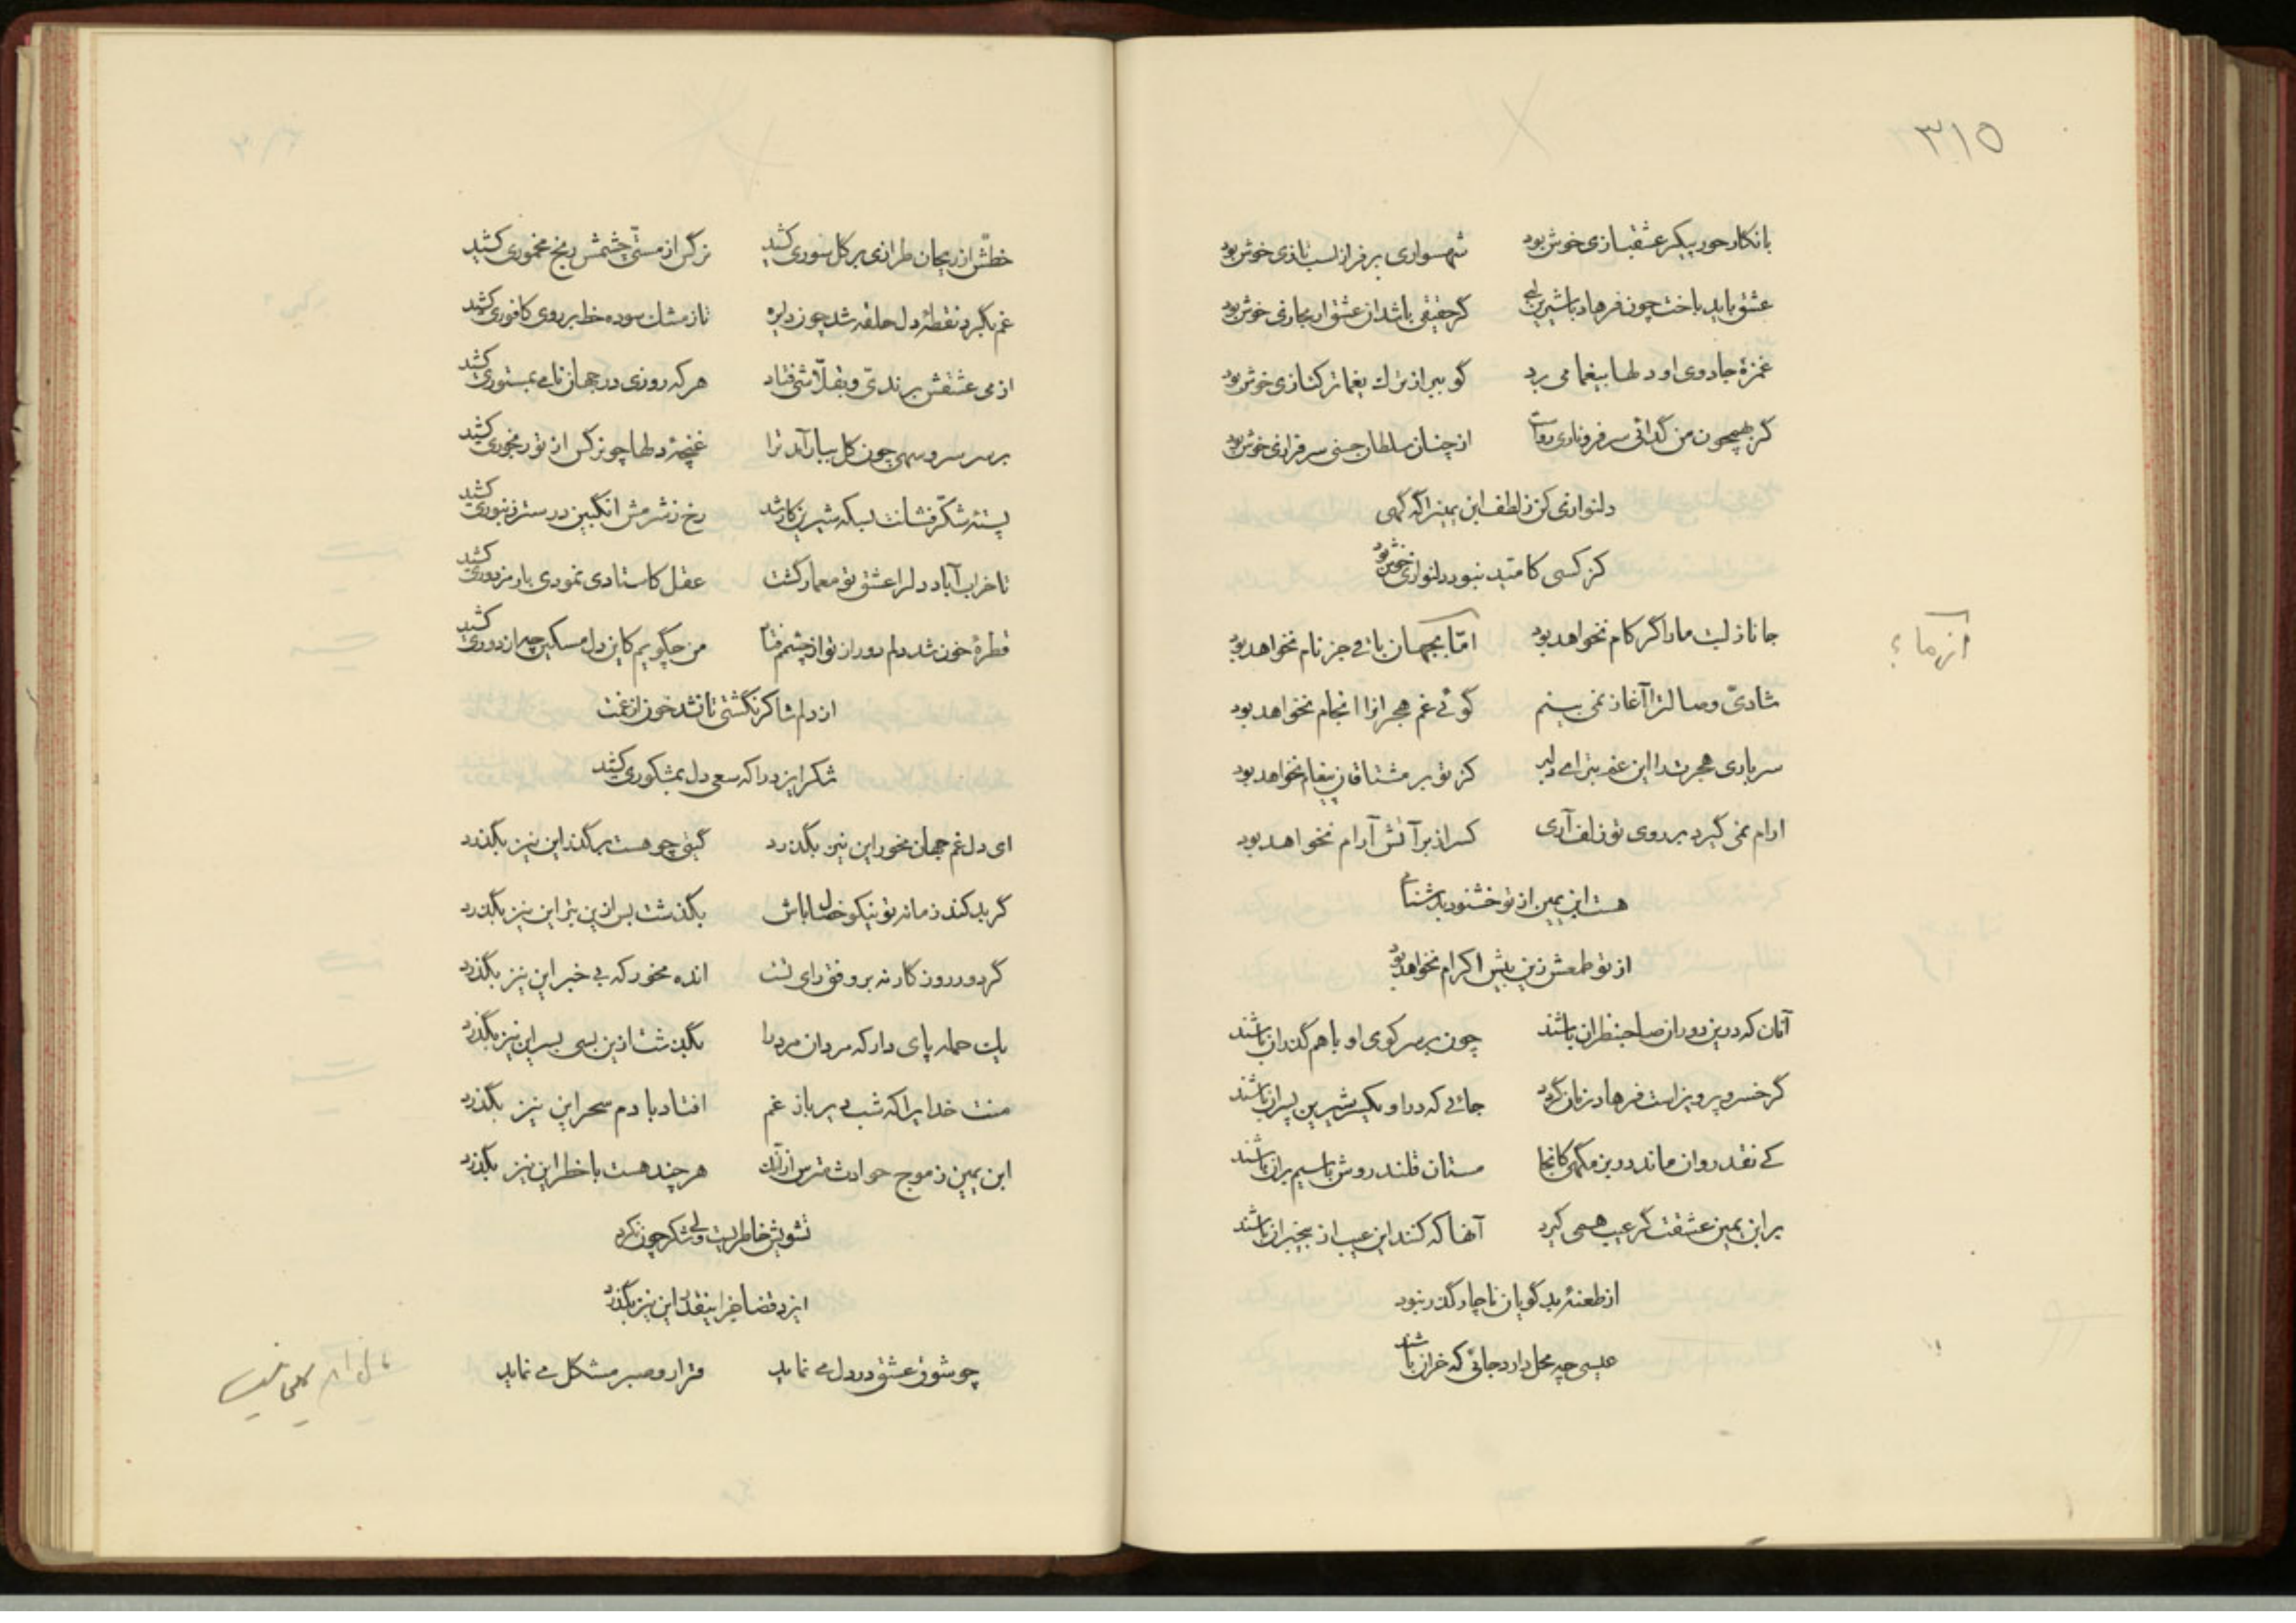 ٣١٥
با نگار حور پیکر عشقبازی خوش بود شهسواری بر فراز اسب تازی خوش بود
عشق باید باخت چون فرهاد با شیرین لبی گر حقیقی باشد آن عشق ار مجازی خوش بود
غمزهٔ جادوی او دلها بیغما می برد گو ببر از ترک یغما ترکتازی خوش بود
گر بهیچون من گدائی سر فرو ناری رواست از چنان سلطان حسنی سرفرازی خوش بود
دلنوازی کن ز لطف ابن یمین را گه گهی
کز کسی کامید نبود دلنوازی خوش بود
جانا ز لبت ما را گر کام نخواهد بود امّا بجهان باقی جز نام نخواهد بود
از ما ؟
شادیّ وصالت را آغاز نمی بینم گوئی غم هجران را انجام نخواهد بود
سر باری هجرت شد این غم بتر ای دلبر کز تو بر مشتاقان پیغام نخواهد بود
ارام نمی گیرد بر روی تو زلف آری کس را ز بر آتش آرام نخواهد بود
هست ابن یمین از تو خشنود بدشنام
از تو طمعش زین بیش اکرام نخواهد بود
آنان که درین دوران صاحبنظران باشند چون بر سر کوی او با هم گذران باشند
گر خسرو پرویز است فرهاد زمان گردد جائی که در او یکسر شیرین پسران باشند
کی نقد روان ماند درین مکهی کانجا مستان قلندروش با سیم بران باشند
بر ابن یمین عشقت گر عیب همی گیرد آنها که کنند این عیب از بیخبران باشند
از طعنهٔ بدگویان ناچار گذر نبود
عیسی چه محل دارد جائی که خران باشند
خطّش از ریحان طرازی بر گل سوری کشید نرگس از مستی چشمش رنج مخموری کشید
غم بگرد نقطهٔ دل حلقه شد چون دایره تا ز مشک سوده خط بر روی کافوری کشید
از می عشقش برندیّ و بقلّاشی فتاد هر که روزی در جهان نامی بمستوری کشید
بر سر سرو سهی چون گل ببار آمد ترا غنچهٔ دلها چو نرگس از تو رنجوری کشید
پستهٔ شکّر فشانت بسکه شیرین کار شد رخ ز شرمش انگبین در ستر زنبوری کشید
تا خراب آباد دل را عشق تو معمار گشت عقل کاستادی نمودی بار مزدوری کشید
قطرهٔ خون شد دلم دور از تو از چشمم فتاد من چگویم کاین دل مسکین چها از دوری کشید
از دلم شاکر نگشتی تا نشد خون از غمت
شکر ایزد را که سعی دل بمشکوری کشید
ای دل غم جهان مخور این نیز بگذرد گیتی چو هست بر گذر این نیز بگذرد
گر بد کند زمانه تو نیکو خصال باش بگذشت بس ازین بتر این نیز بگذرد
گر دور روزگار نه بر وفق رای تست انده مخور که بی خبر این نیز بگذرد
یک حمله پای دار که مردان مرد را بگذشت ازین بسی بسر این نیز بگذرد
منت خدایرا که شب دیر باز غم افتاد با دم سحر این نیز بگذرد
ابن یمین ز موج حوادث مترس از آنک هر چند هست با خطر این نیز بگذرد
تشویش خاطر است ولی شکر چون نکرد
ایزد قضا جز اینقدر این نیز بگذرد
چو شوق عشق در دل می نماید قرار و صبر مشکل می نماید